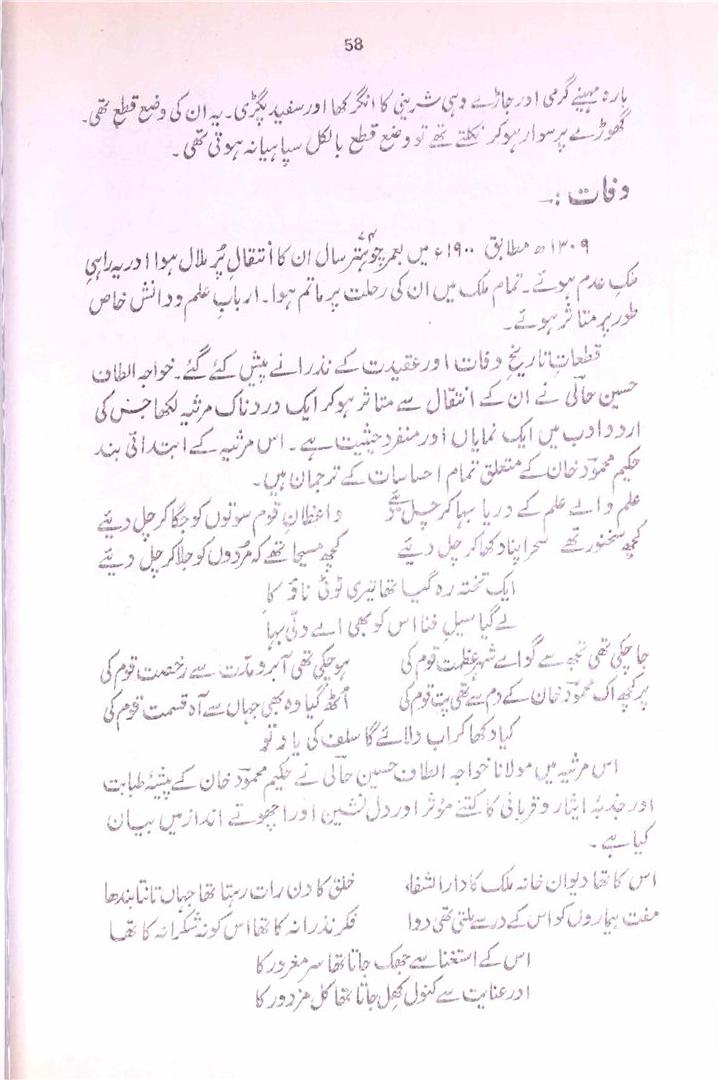 58
بارہ مہینے گرمی اور جاڑے وہی شربتی کا انگرکھا اور سفید پگڑی۔ یہ ان کی وضع قطع تھی۔
گھوڑے پر سوار ہو کر نکلتے تھے تو وضع قطع بالکل سپاہیانہ ہوتی تھی۔
وفات :۔
۱۳۰۹ھ مطابق ۱۹۰۰ء میں بعمر چوہتر سال ان کا انتقالِ پُر ملال ہوا اور یہ راہیِ
ملکِ عدم ہوئے۔ تمام ملک میں ان کی رحلت پر ماتم ہوا۔ اربابِ علم و دانش خاص
طور پر متاثر ہوئے۔
قطعاتِ تاریخِ وفات اور عقیدت کے نذرانے پیش کئے گئے۔ خواجہ الطاف
حسین حالؔی نے ان کے انتقال سے متاثر ہو کر ایک دردناک مرثیہ لکھا جس کی
اردو ادب میں ایک نمایاں اور منفرد حیثیت ہے۔ اس مرثیہ کے ابتدائی بند
حکیم محمودؔ خان کے متعلق تمام احساسات کے ترجمان ہیں۔
علم والے علم کے دریا بہا کر چل دیئے واعظانِ قوم سوتوں کو جگا کر چل دیئے
کچھ سخنور تھے سحر اپنا دکھا کر چل دیئے کچھ مسیحا تھے کہ مُردوں کو جلا کر چل دیئے
ایک تختہ رہ گیا تھا تیری ٹوٹی ناؤ کا
لے گیا سیلِ فنا اس کو بھی اے دلّی بہا
جا چکی تھی تجھ سے گو اے شہر عظمت قوم کی ہو چکی تھی آبرو مدّت سے رخصت قوم کی
پر کچھ اک محمودؔ خان کے دم سے تھی پت قوم کی اُٹھ گیا وہ بھی جہاں سے آہ قسمت قوم کی
کیا دکھا کر اب دلائے گا سلف کی یاد تو
اس مرثیہ میں مولانا خواجہ الطاف حسین حالؔی نے حکیم محمودؔ خان کے پیشۂ طبابت
اور جذبۂ ایثار و قربانی کا کتنے مؤثر اور دل نشین اور اچھوتے انداز میں بیان
کیا ہے۔
اس کا تھا دیوان خانہ ملک کا دارالشفاء خلق کا دن رات رہتا تھا جہاں تانتا بندھا
مفت بیماروں کو اس کے در سے ملتی تھی دوا فکر نذرانہ کا تھا اس کو نہ شکرانہ کا تھا
اس کے استغنا سے جھک جاتا تھا سر مغرور کا
اور عنایت سے کنول کھِل جاتا تھا کل مزدور کا